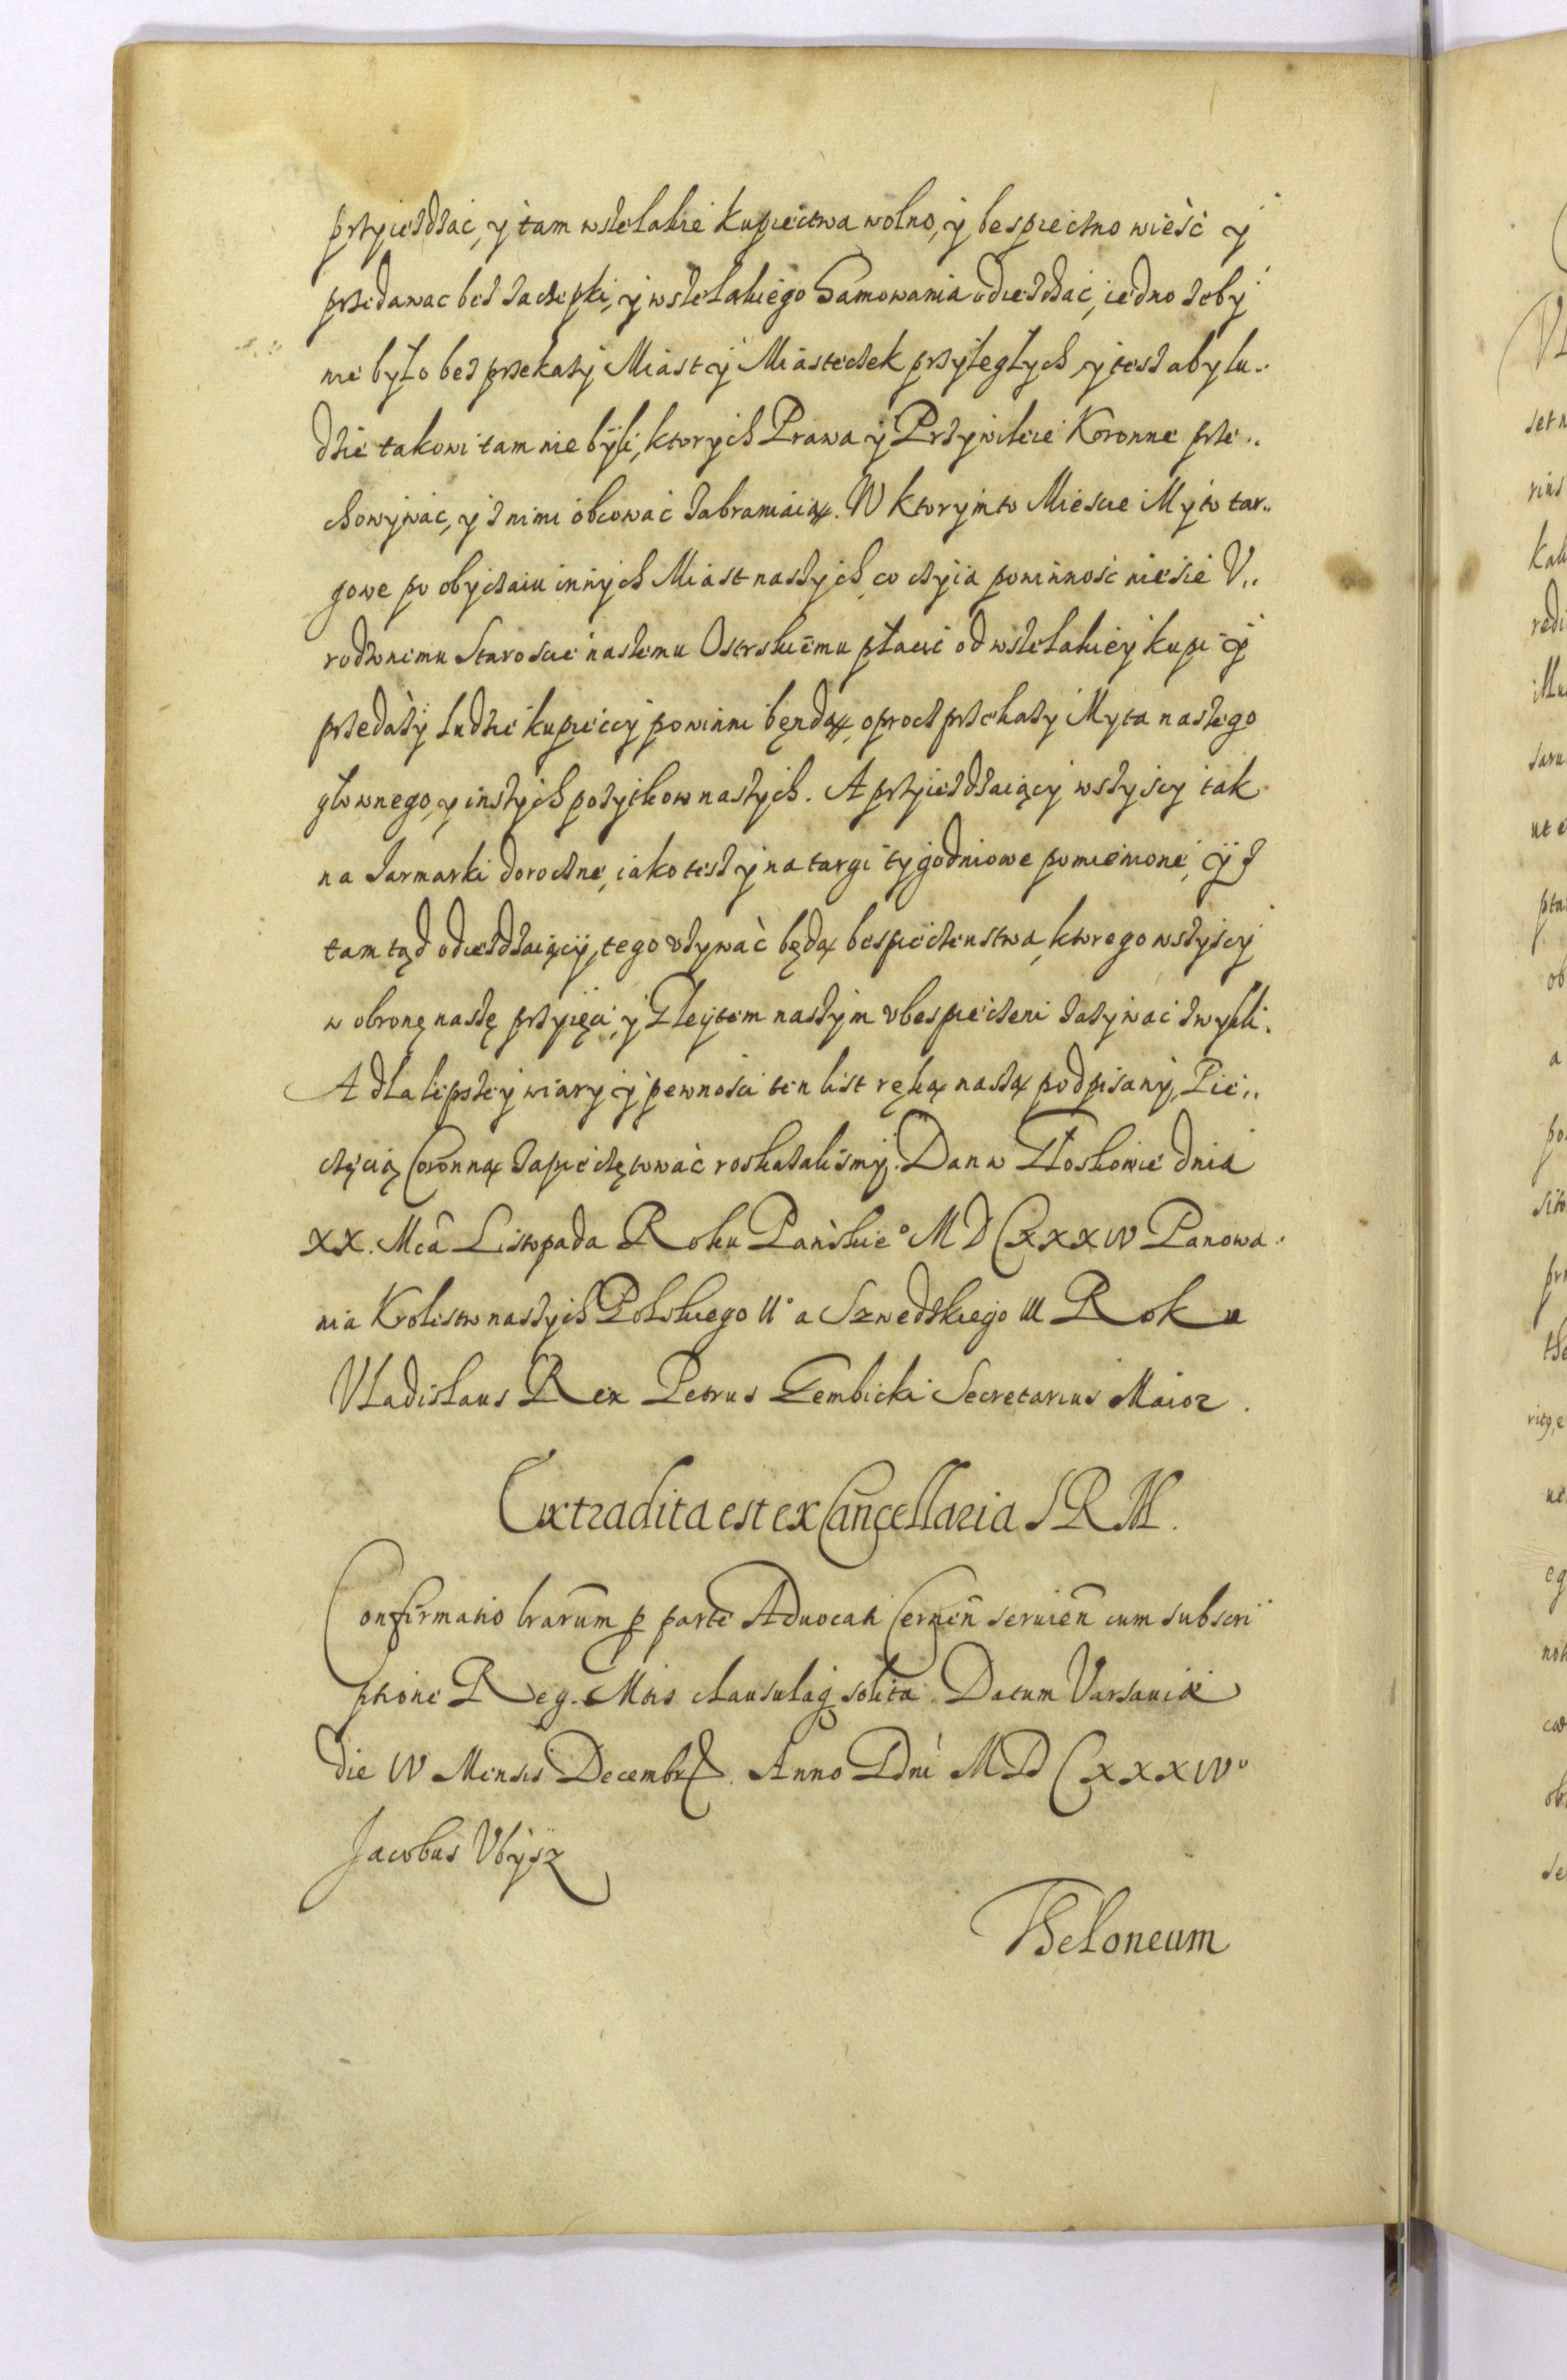 przyieżdżać, y tam wszelakie kupiectwa wolno, y bespieczno wieść y
przedawac bez zaczepki, y wszelakiego hamowania odieżdżać, iedno żeby
nie było bez przekazy Miast y Miasteczek przyległych, y tesz aby lu„
dzie takowi tam nie byli, ktorych Prawa y Przywileie Koronne prze„
chowywać, y z nimi obcować zabraniaią. W ktorym to Miescie Myto tar„
gowe po obyczaiu innych Miast naszych, co czyia powinność niesie V„
rodzonemu Staroscie naszemu Ostrskiemu płacić od wszelakiey kupi y
przedaży ludzie kupieccy powinni będą, oprocz przekazy Myta naszego
głownego, y inszych pożytkow naszych. A przyieżdżaiący wszyscy tak
na Jarmarki doroczne, iako tesz y na targi tygodniowe pomienione, y z
tam tąd odieżdżaiący, tego vżywać będą bespieczenstwa, ktorego wszyscy
w obronę naszę przyięci, y Gleytem naszym vbespieczeni zażywać zwykli.
A dla lepszey wiary y pewności ten list ręką naszą podpisany, Pie„
częcią Coronną zapieczętować roskazaliśmy. Dan w Tłoskowie dnia
XX. Mca Listopada Roku Pańskie° MDCXXXIV Panowa„
nia Krolestw naszych Polskiego II° a Szwedzkiego III Roku
Vladislaus Rex Petrus Gembicki Secretarius Maior.
Extradita est ex Cancellaria S R M.
Confirmatio lrarum p parte Aduocati Cernen seruien cum subscri
ptione Reg. Mtis clausulaq solita. Datum Varsauiæ
die IV Mensis Decembr. Anno Dni MDCXXXIV°
Jacobus Vbysz
Theloneum